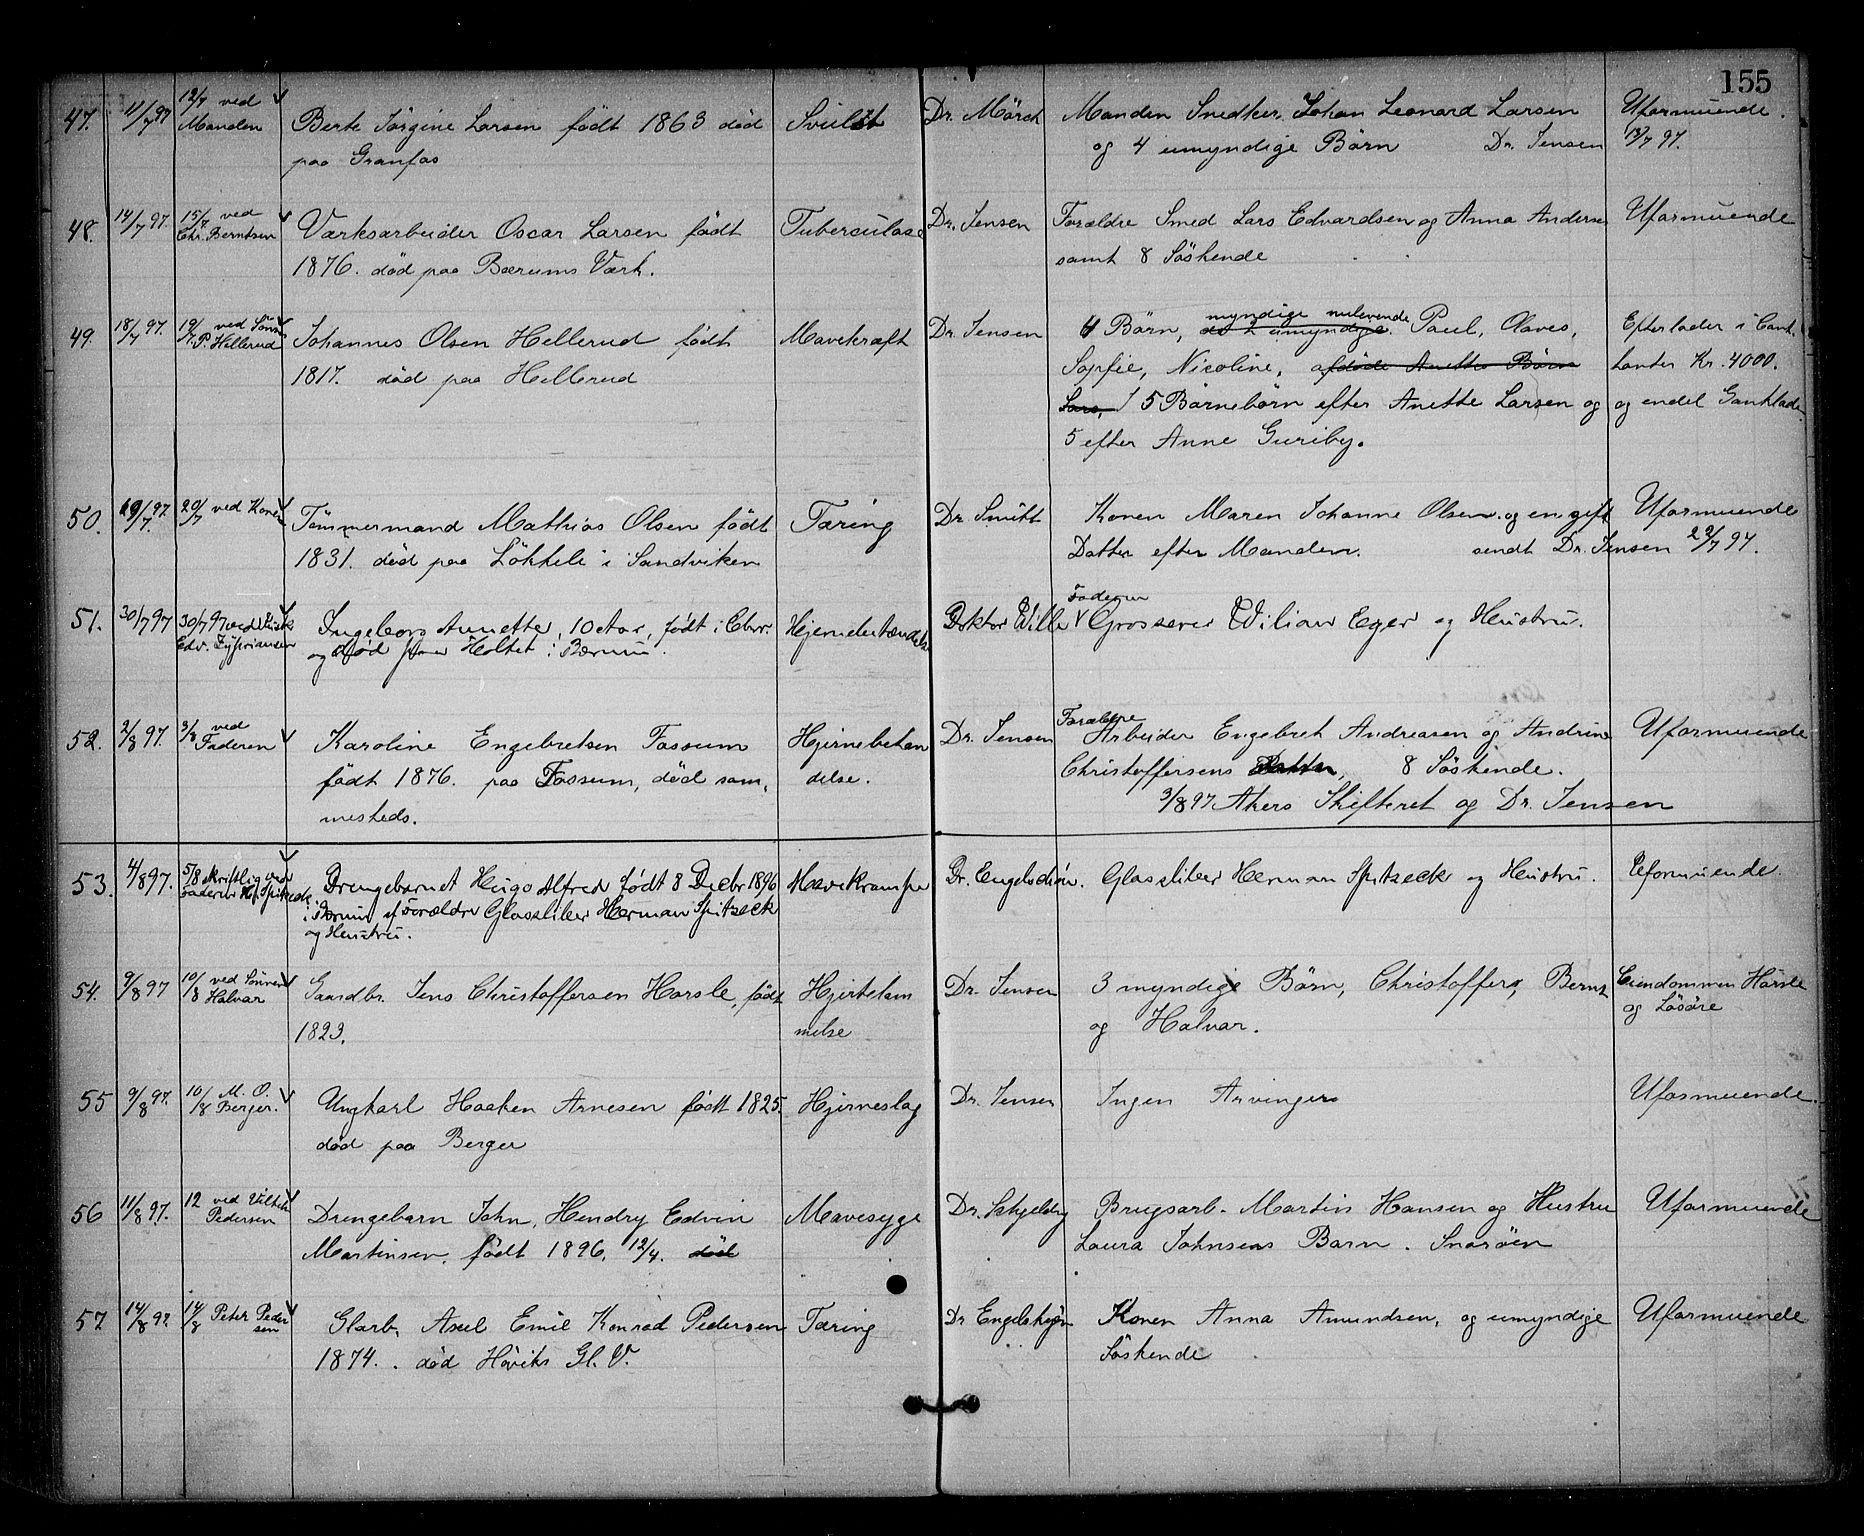 155
47. 11/7 97 12/7 ved Manden Berte Jørgine Larsen født 1863 død Svulst Dr. Mörch Manden Snedker Johan Leonard Larsen Uformuende.
paa Granfos og 4 umyndige Børn Dr. Jensen 13/7 97.
48. 14/7 97. 15/7 ved Chr. Berntsen Værksarbeider Oscar Larsen født Tuberculose Dr. Jensen Forældre Smed Lars Edvardsen og Anna Andersen Uformuende
1876. død paa Bærums Værk. samt 8 Söskende
49. 18/7 97. 19/7 ved Sönnen P. Hellerud Johannes Olsen Hellerud født Mavekræft Dr. Jensen 4 Børn, myndige nulevende Paul, Olaves, Efterlader i Cont.
1817. død paa Hellerud Sopfie, Nicoline, afdöde Anettes Børn tanter Kr. 4000.
Lars, 5 Børnebörn efter Anette Larsen og og endel Ganklæder
5 efter Anne Guriby.
50. 19/7 97. 20/7 ved Konen Tømmermand Mathias Olsen født Tæring Dr Smitt Konen Maren Johanne Olsen og en gift Uformuende
1831. død paa Lökkeli i Sandviken Datter efter Manden. sendt Dr. Jensen 22/7 97.
51. 30/7 97 30/7 97 ved Edv. Zypriansen Ingeborg Anette, 10 Aar, født i Chr. Hjernebetændelse Doktor Wille Faderen Grosserer Wiliam Eger og Hustru.
og død paa Holtet i Bærum.
52. 2/8 97. 3/8 ved Faderen Karoline Engebretsen Fossum Hjernebetæn Dr. Jensen Forældre Arbeider Engebret Andreasen og Andrine Uformuende
født 1876. paa Fossum, død sam, delse. Christoffersens Datter, 8 Söskende.
mesteds. 3/8 97 Akers Skifteret og Dr. Jensen
53. 4/8 97. 5/8 skriftlig ved Faderen H. Spitzeck Drengebarnet Hugo Alfred født 8 Decbr 1896 Mavekrampe Dr. Engelschiøn. Glassliber Herman Spitzeck og Hustru. Uformuende.
i Bærum af Forældre Glassliber Herman Spitzeck
og Hustru.
54. 9/8 97 10/8 ved Sönnen Halvar Gaardbr. Jens Christoffersen Horsle, født Hjertelam Dr. Jensen 3 myndige Børn, Christoffer, Bernt Eiendommen Horsle
1823. melse og Halvar. og Lösöre
55 9/8 97. 10/8 M. O. Berger. Ungkarl Haaken Arnesen født 1825. Hjerneslag Dr. Jensen Ingen Arvinger Uformuende.
død paa Berger
56 11/8 97. 12 ved Vilhelm Pedersen Drengebarn John, Hendry Edvin Mavesyge Dr. Schjelsby Brugsarb. Martin Hansen og Hustru Uformuende
Martinsen, født 1896, 12/4. död Laura Johnsens Barn. Snaröen
57 14/8 92 14/8 Peter Pedersen Glarb. Axel Emil Konrad Pedersen Tæring Dr Engelskjøn Konen Anna Amundsen, og umyndige Uformuende
1874. . død Høviks Gl. V. Söskende